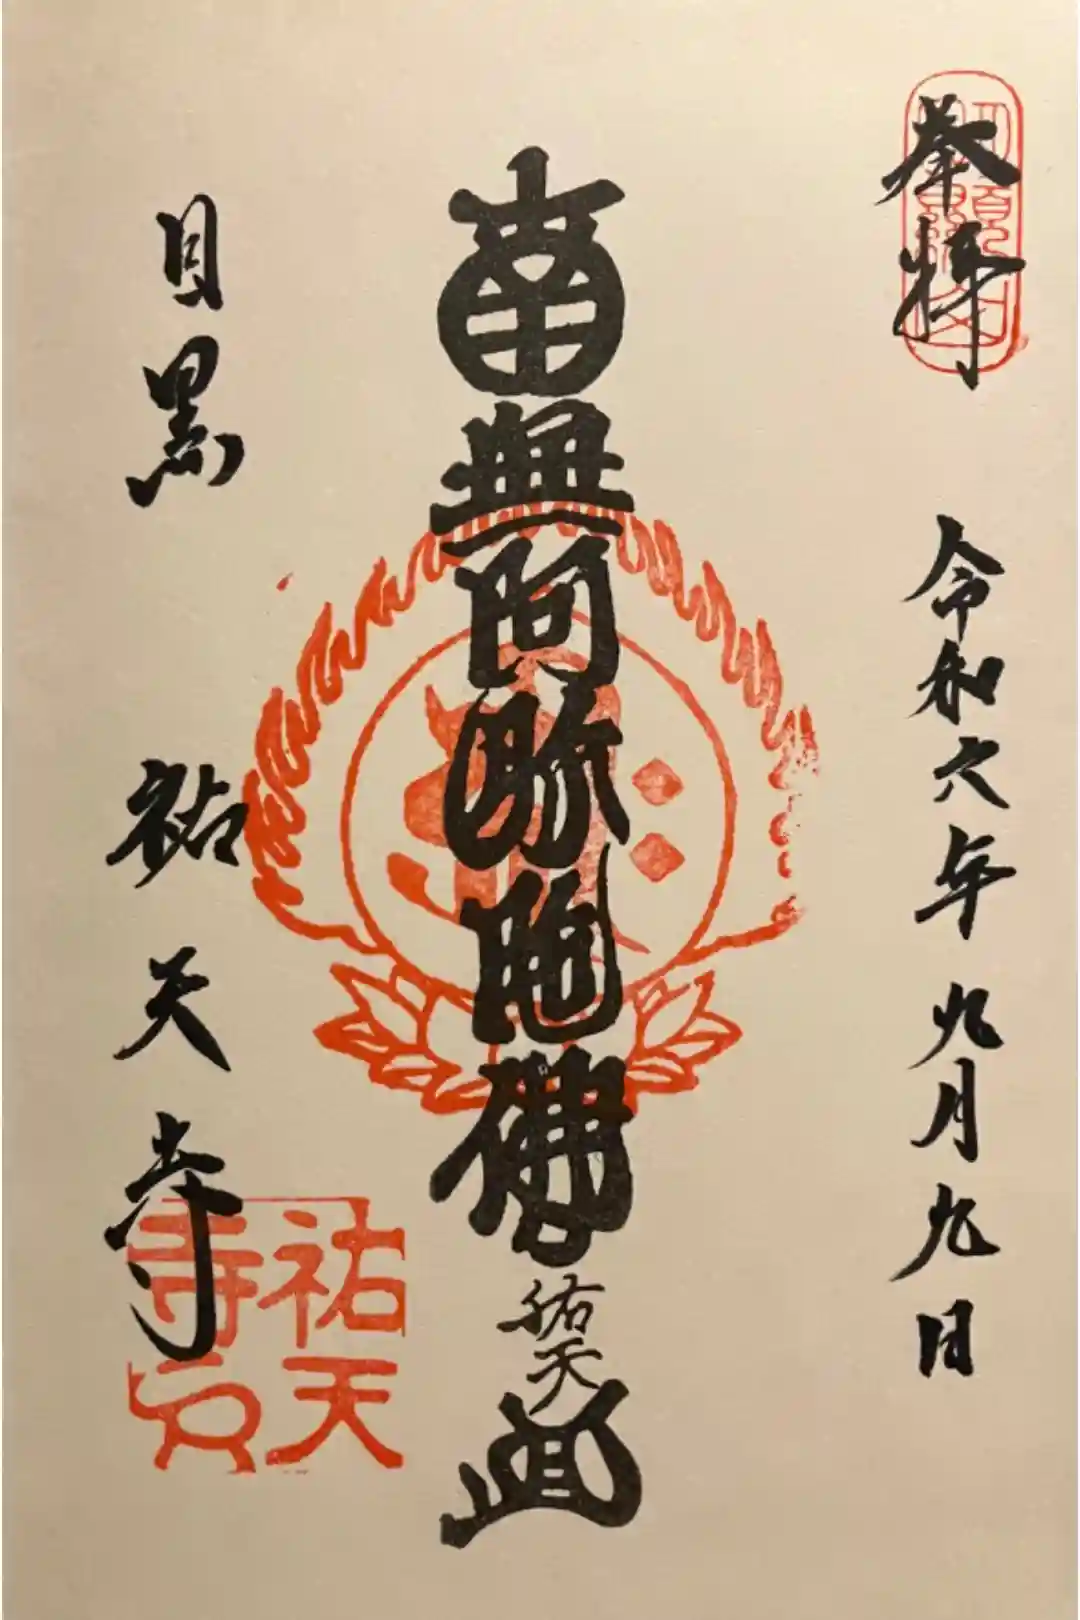 奉拝
令和六年九月九日
南無阿弥陀佛
祐天
目黒
祐天寺
祐天
寺印